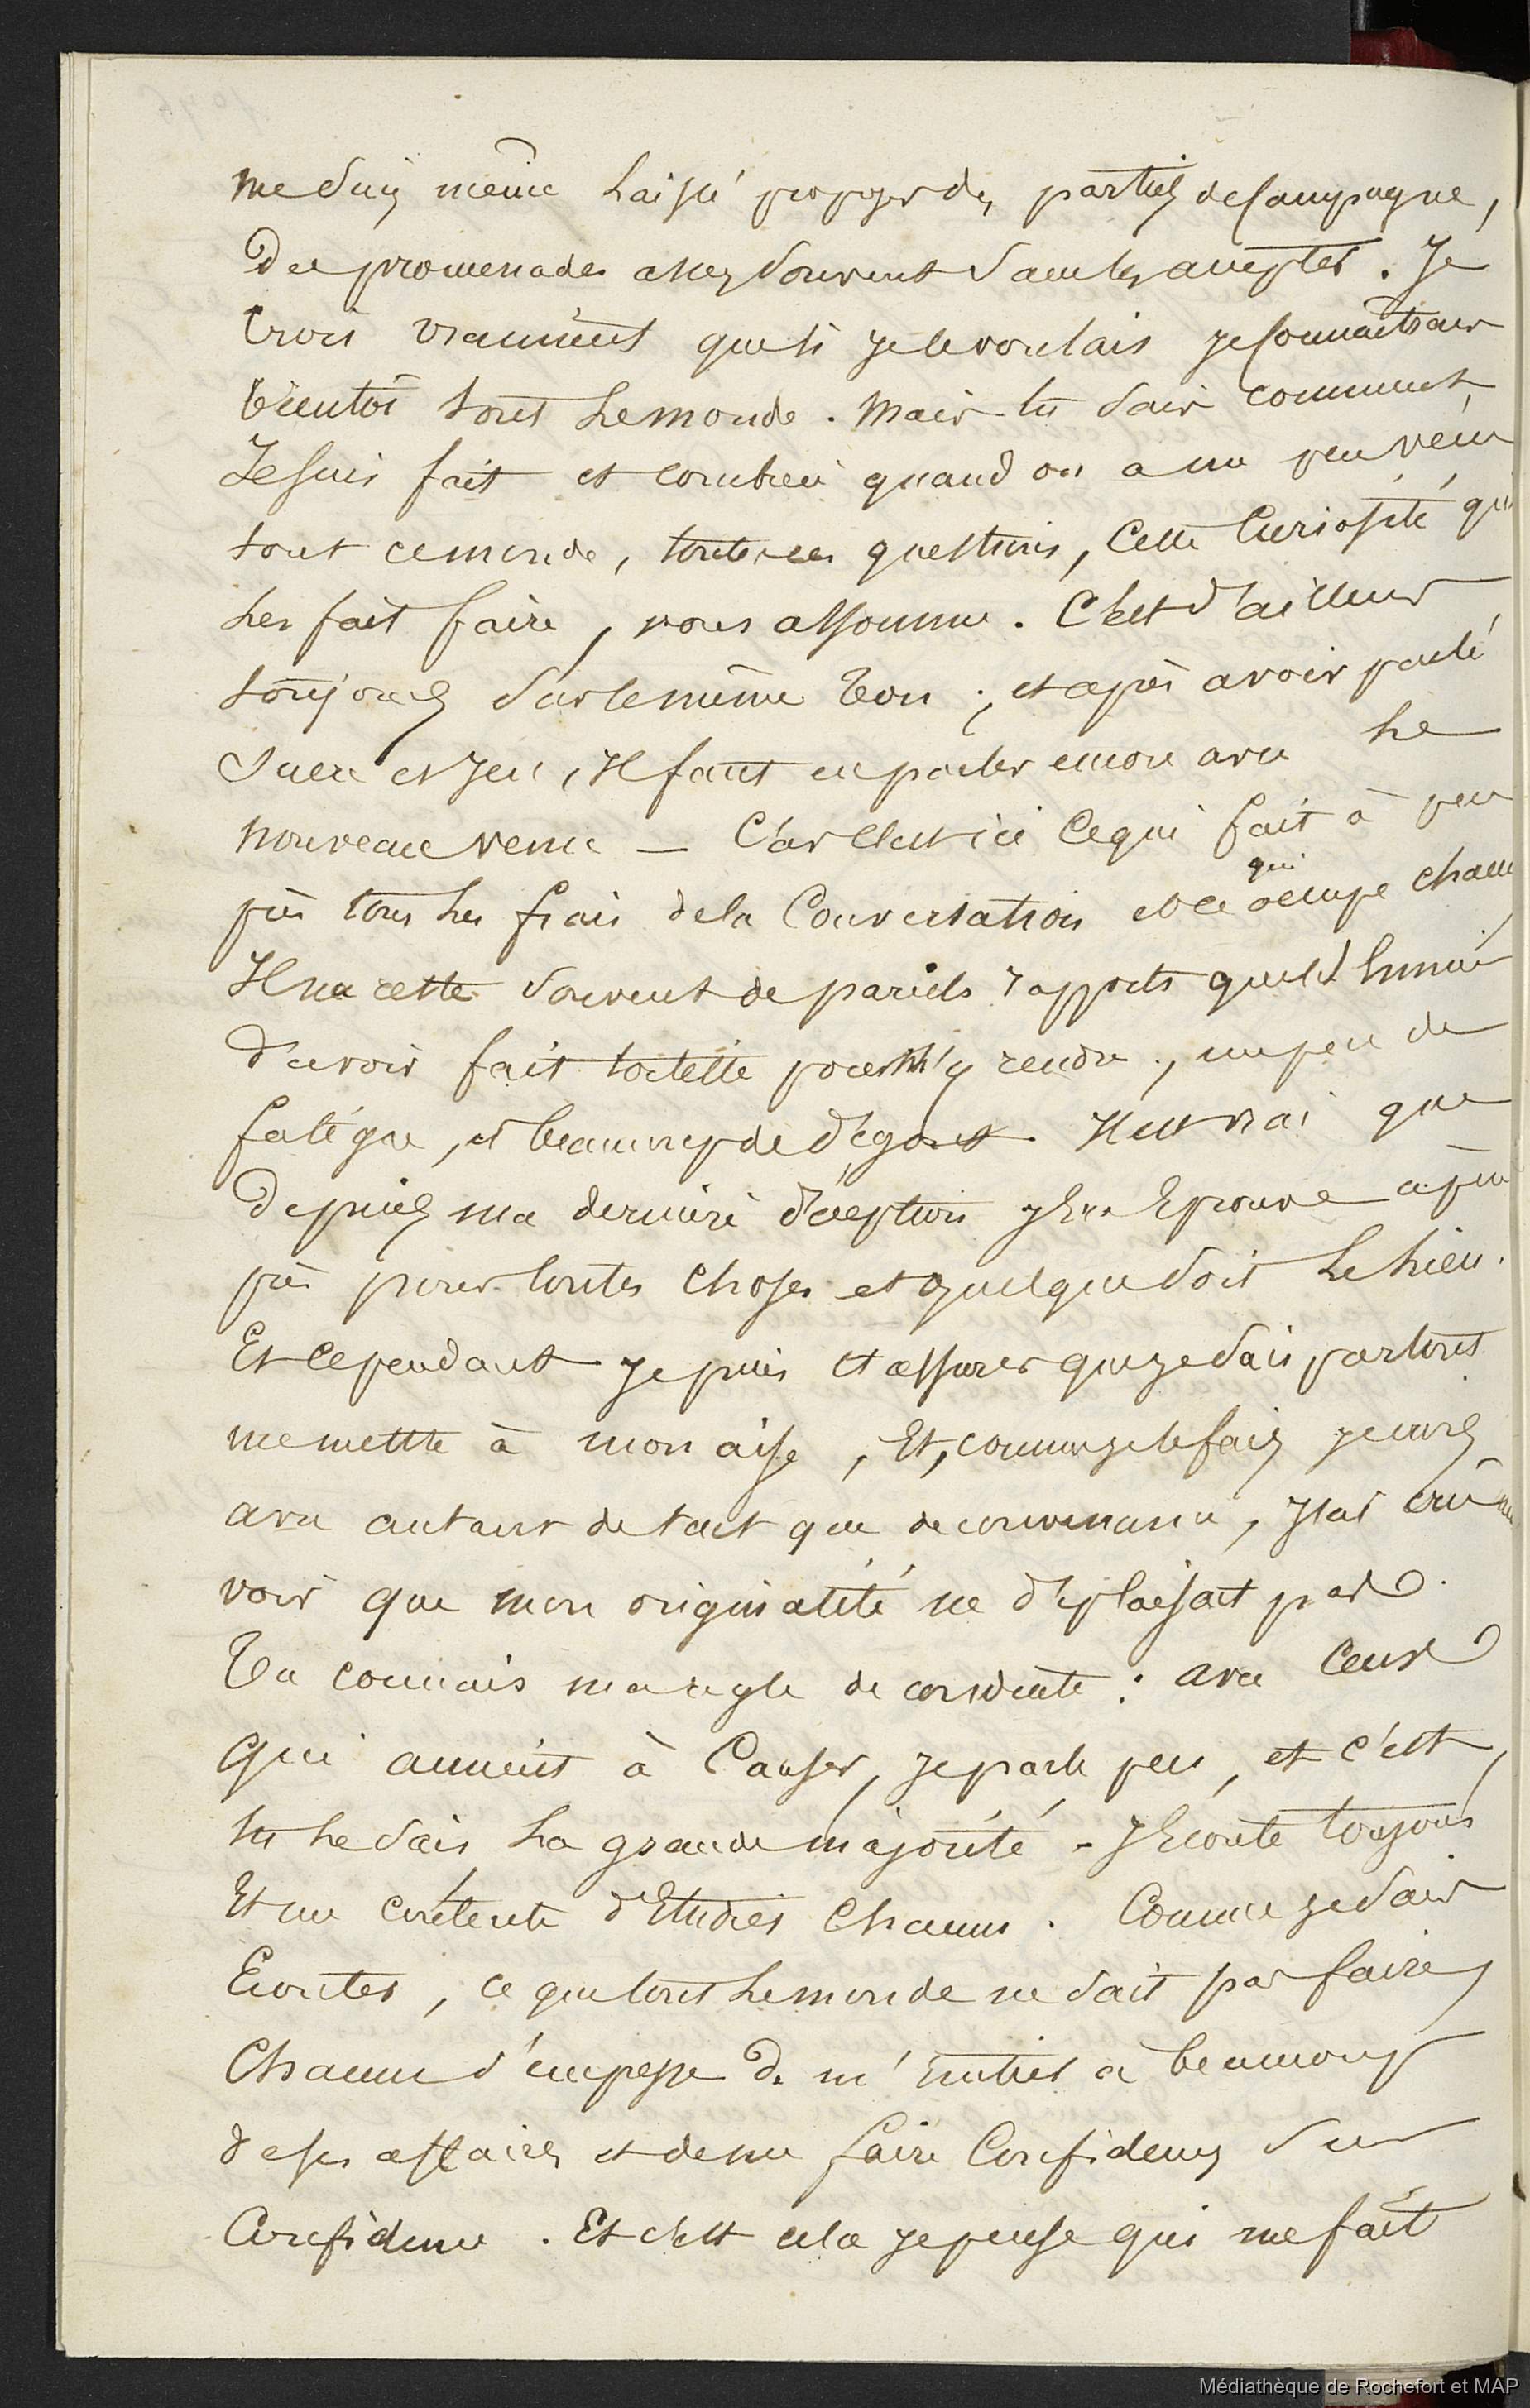 me suis même laissé proposer des parties de campagne,
des promenades assez souvent sans les accepter. Je
crois vraiment que si je le voulais je connaîtrais
bientôt tout le monde. Mais tu sais comment
Je suis fait et combien quand on a un peu vécu
tout ce monde, toutes ces questions, cette curiosité qui
les fait faire, vous assomme. C'est d'ailleurs
toujours sur le même ton; et après avoir parlé
sucre et jeu, il faut en parler encore avec le
nouveau venu — Car c'est ici ce qui fait à peu
près tous les frais de la Conversation et ce qui occupe chacun
Il ne reste souvent de pareils rapports que l'ennui
d'avoir fait toilette pour s'y rendre, un peu de
fatigue, et beaucoup de dégout. Il est vrai que
depuis ma dernière déception j'en éprouve à peu
près pour toutes choses et quelque soit le lieu.
Et cependant je puis t'assurer que je sais partout
me mettre à mon aise, Et, comme je le fais je crois
avec autant de tact que de convenance, J'ai cru
voir que mon originalité ne déplaisait pas.
Tu connais ma regle de conduite: avec ceux
qui aiment à causer, je parle peu, et c'est,
tu le sais la grande majorité - J'écoute toujours
Et me contente d'Etudier chacun. Comme je sais
Ecouter, ce que tout le monde ne sait pas faire,
Chacun s'empresse de m'initier à beaucoup
de ses affaires et de me faire Confidence sur
Confidence. Et c'est cela je pense qui me fait
Médiathèque de Rochefort et MAP